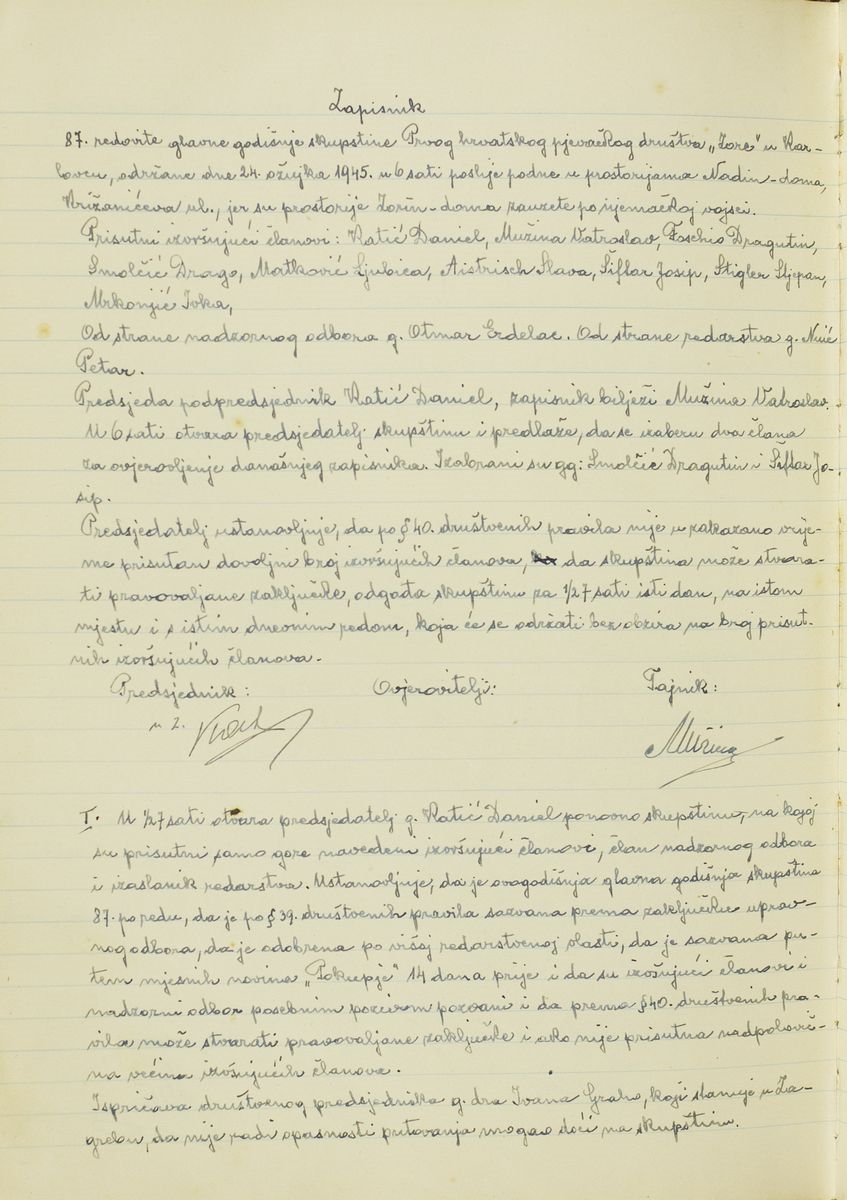 Zapisnik
87. redovite glavne godišnje skupštine Prvog hrvatskog pjevačkog društva „Zore" u Kar-
lovcu, održane dne 24. ožujka 1945. u 6 sati poslije podne u prostorijama Nadin-doma,
Križanićeva ul., jer su prostorije Zorin-doma zauzete po njemačkoj vojsci.
Prisutni izvršujući članovi: Katić Daniel, Mužina Vatroslav, Foschio Dragutin,
Smolčić Drago, Matković Ljubica, Aistrisch Slava, Šiftar Josip, Stigler Stjepan,
Mrkonjić Ivka,
Od strane nadzornog odbora g. Otmar Erdelac. Od strane redarstva g.
Petar.
Predsjeda podpredsjednik Katić Daniel, zapisnik bilježi Mužina Vatroslav.
U 6 sati otvara predsjedatelj skupštinu i predlaže, da se izaberu dva člana
za ovjerovljenje današnjeg zapisnika. Izabrani su gg: Smolčić Dragutin i Šiftar Jo-
sip.
Predsjedatelj ustanovljuje, da po § 40. društvenih pravila nije u zakazano vrije-
me prisutan dovoljni broj izvršujućih članova, da skupština može stvara-
ti pravovaljane zaključke, odgađa skupštinu za 1/27 sati isti dan, na istom
mjestu i s istim dnevnim redom, koja će se održati bez obzira na broj prisut-
nih izvršujućih članova.
Predsjednik: Ovjerovitelji: Tajnik:
u z. Katić Mužina
I. U 1/27 sati otvara predsjedatelj g. Katić Daniel ponovno skupštinu, na kojoj
su prisutni samo gore navedeni izvršujući članovi, član nadzornog odbora
i izaslanik redarstva. Ustanovljuje, da je ovogodišnja glavna godišnja skupština
87. po redu, da je po § 39. društvenih pravila sazvana prema zaključku uprav-
nog odbora, da je odobrena po višoj redarstvenoj vlasti, da je sazvana pu-
tem mjesnih novina „Pokupje" 14 dana prije i da su izvšujući članovi i
nadzorni odbor posebnim pozivom pozvani i da prema § 40. društvenih pra-
vila može stvarati pravovaljane zaključke i ako nije prisutna nadpolovič-
na većina izvršujućih članova.
Ispričava društvenog predsjednika g. dra Ivana Graho, koji stanuje u Za-
grebu, da nije radi opasnosti putovanja mogao doći na skupštinu.